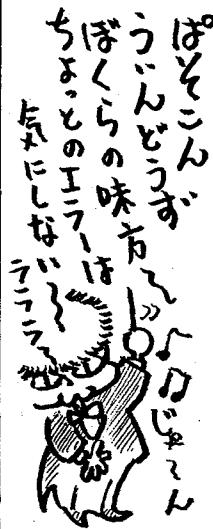 ぱそこん
うぃんどうず
ぼくらの味方〜
ちょっとのエラーは
気にしない〜
ラララ〜
じゃーん